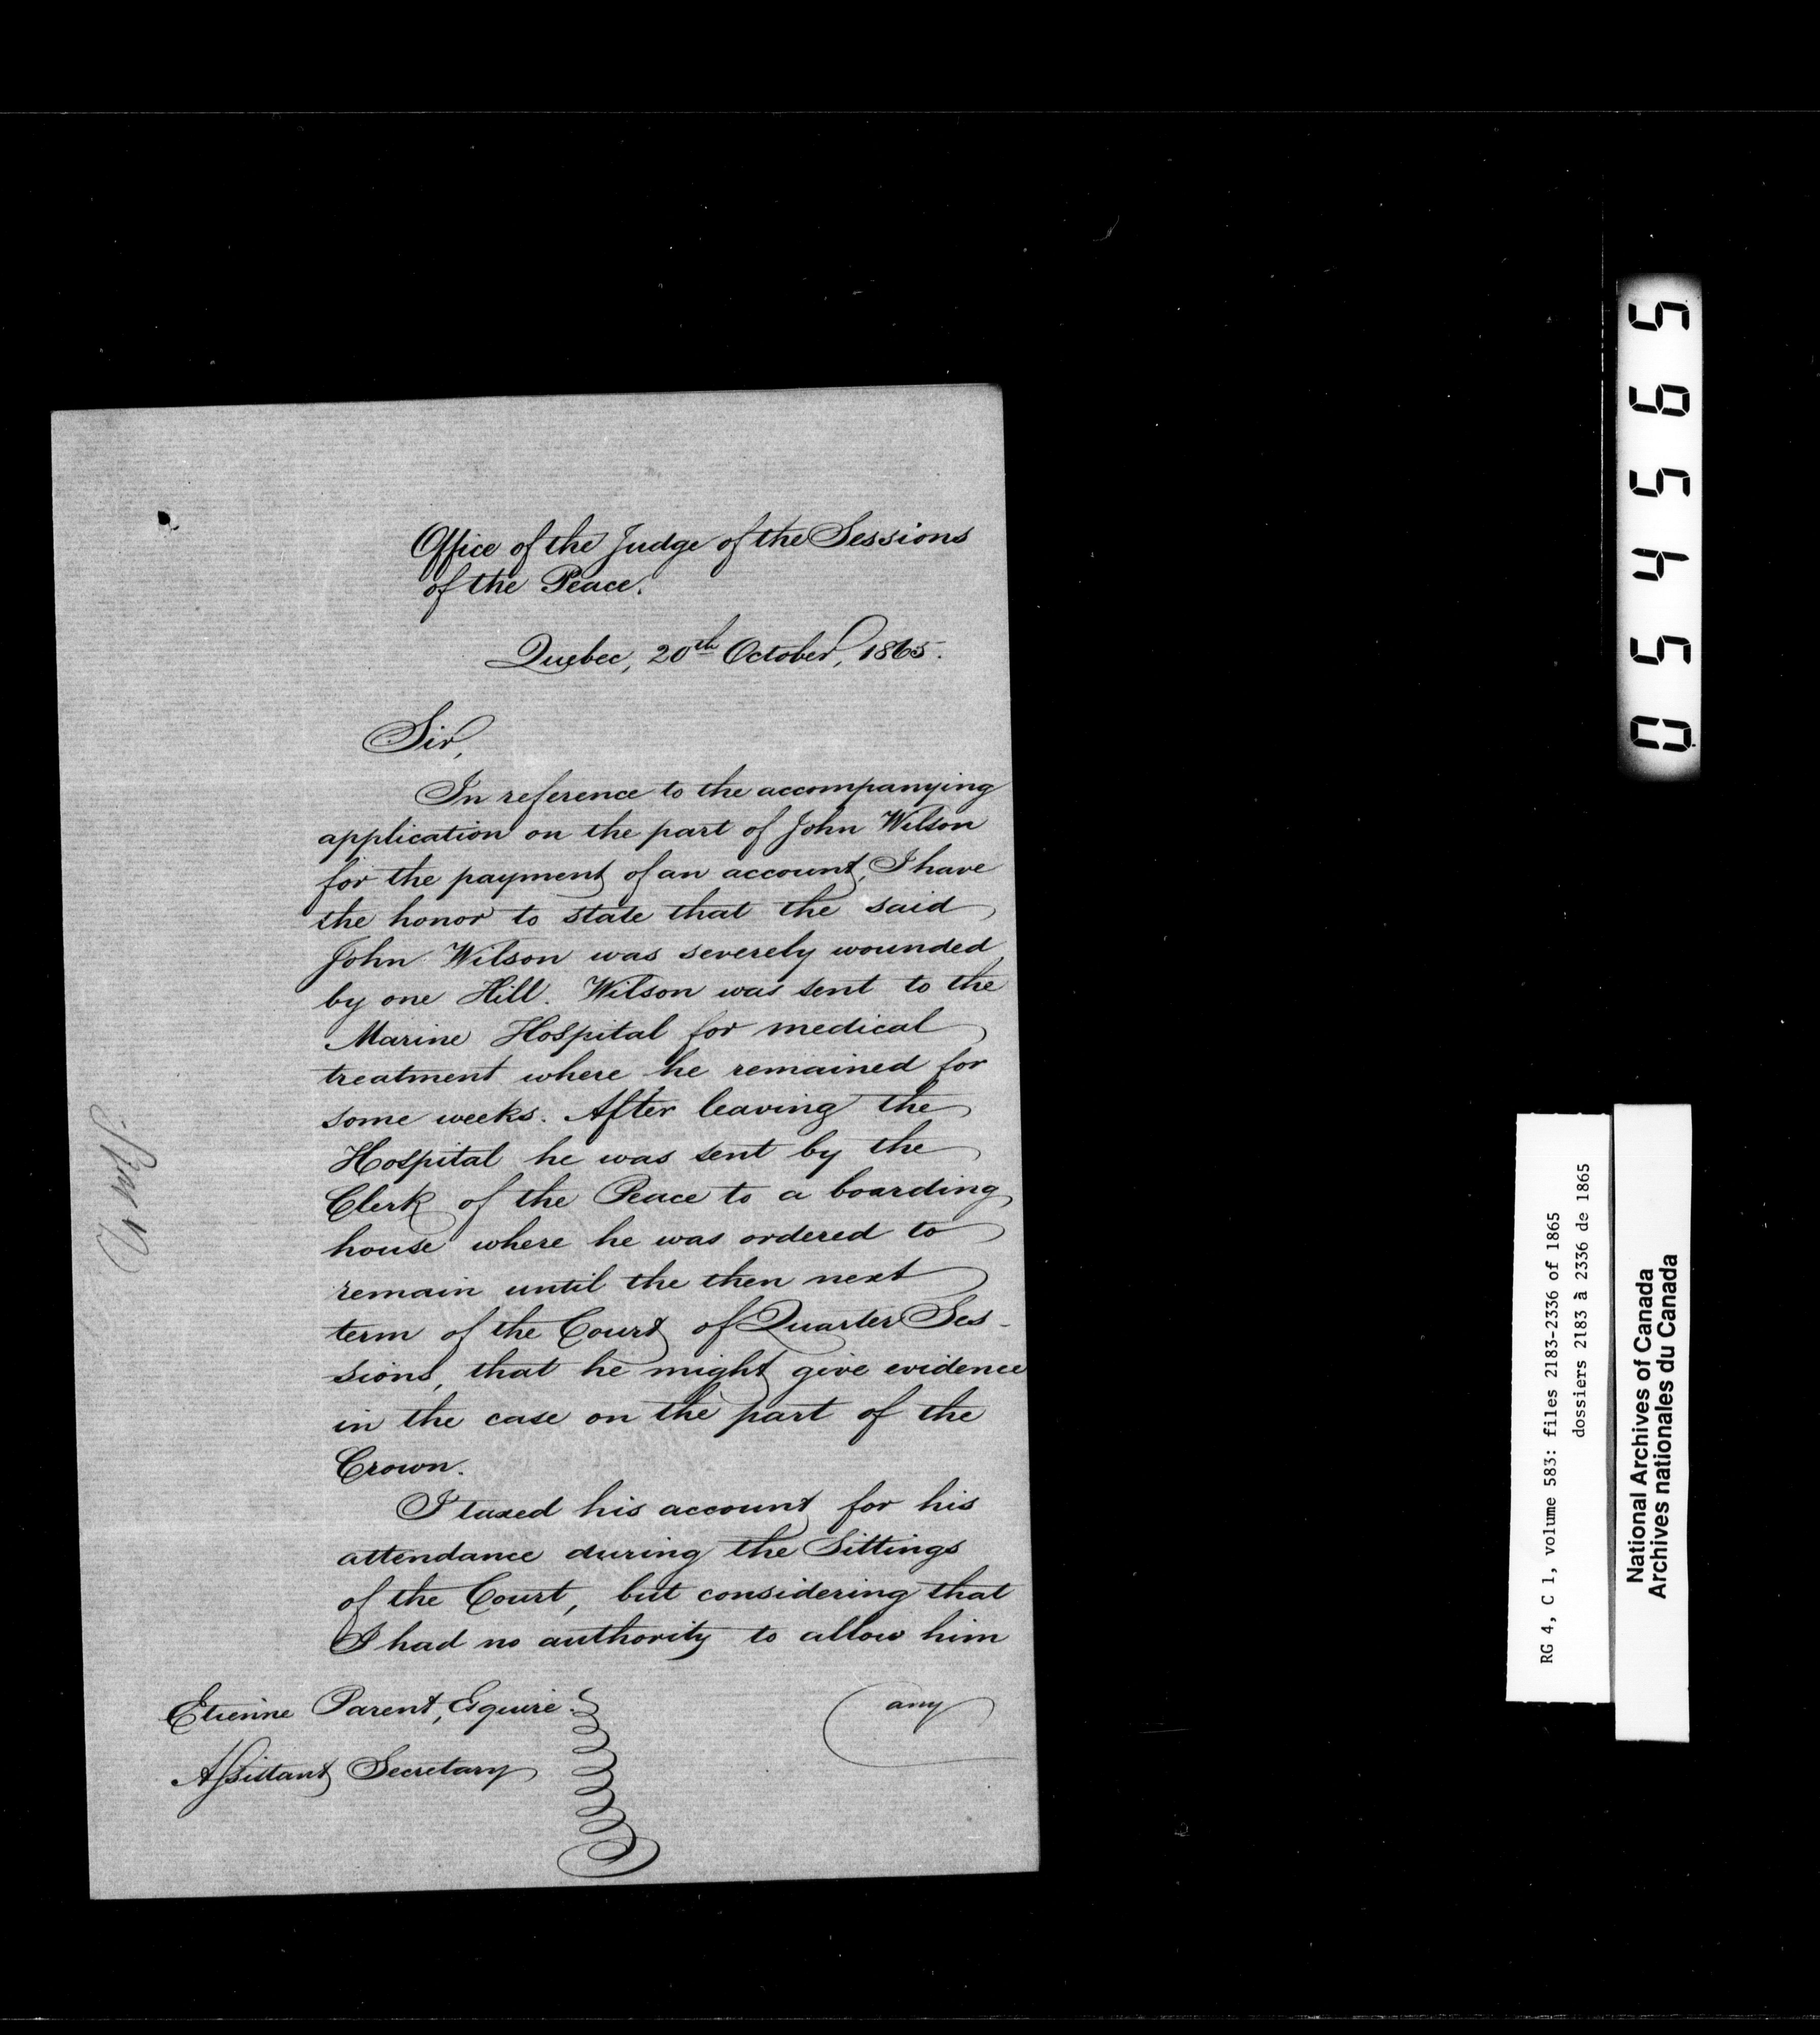 Office of the Judge of the Sessions
of the Peace.
Quebec, 20th October, 1865.
Sir,
In reference to the accompanying
application on the part of John Wilson
for the payment of an account, I have
the honor to state that the said
John Wilson was severely wounded
by one Hill. Wilson was sent to the
Marine Hospital for medical
treatment where he remained for
some weeks. After leaving the
Hospital he was sent by the
Clerk of the Peace to a boarding
house where he was ordered to
remain until the then next
term of the Court of Quarter Ses-
sions, that he might give evidence
in the case on the part of the
Crown.
I taxed his account for his
attendance during the Sittings
of the Court, but considering that
I had no authority to allow him
any
Etienne Parent, Esquire.
Assistant Secretary
054565
RG 4, C 1, volume 583: files 2183-2336 of 1865
dossiers 2183 à 2336 de 1865
National Archives of Canada
Archives nationales du Canada